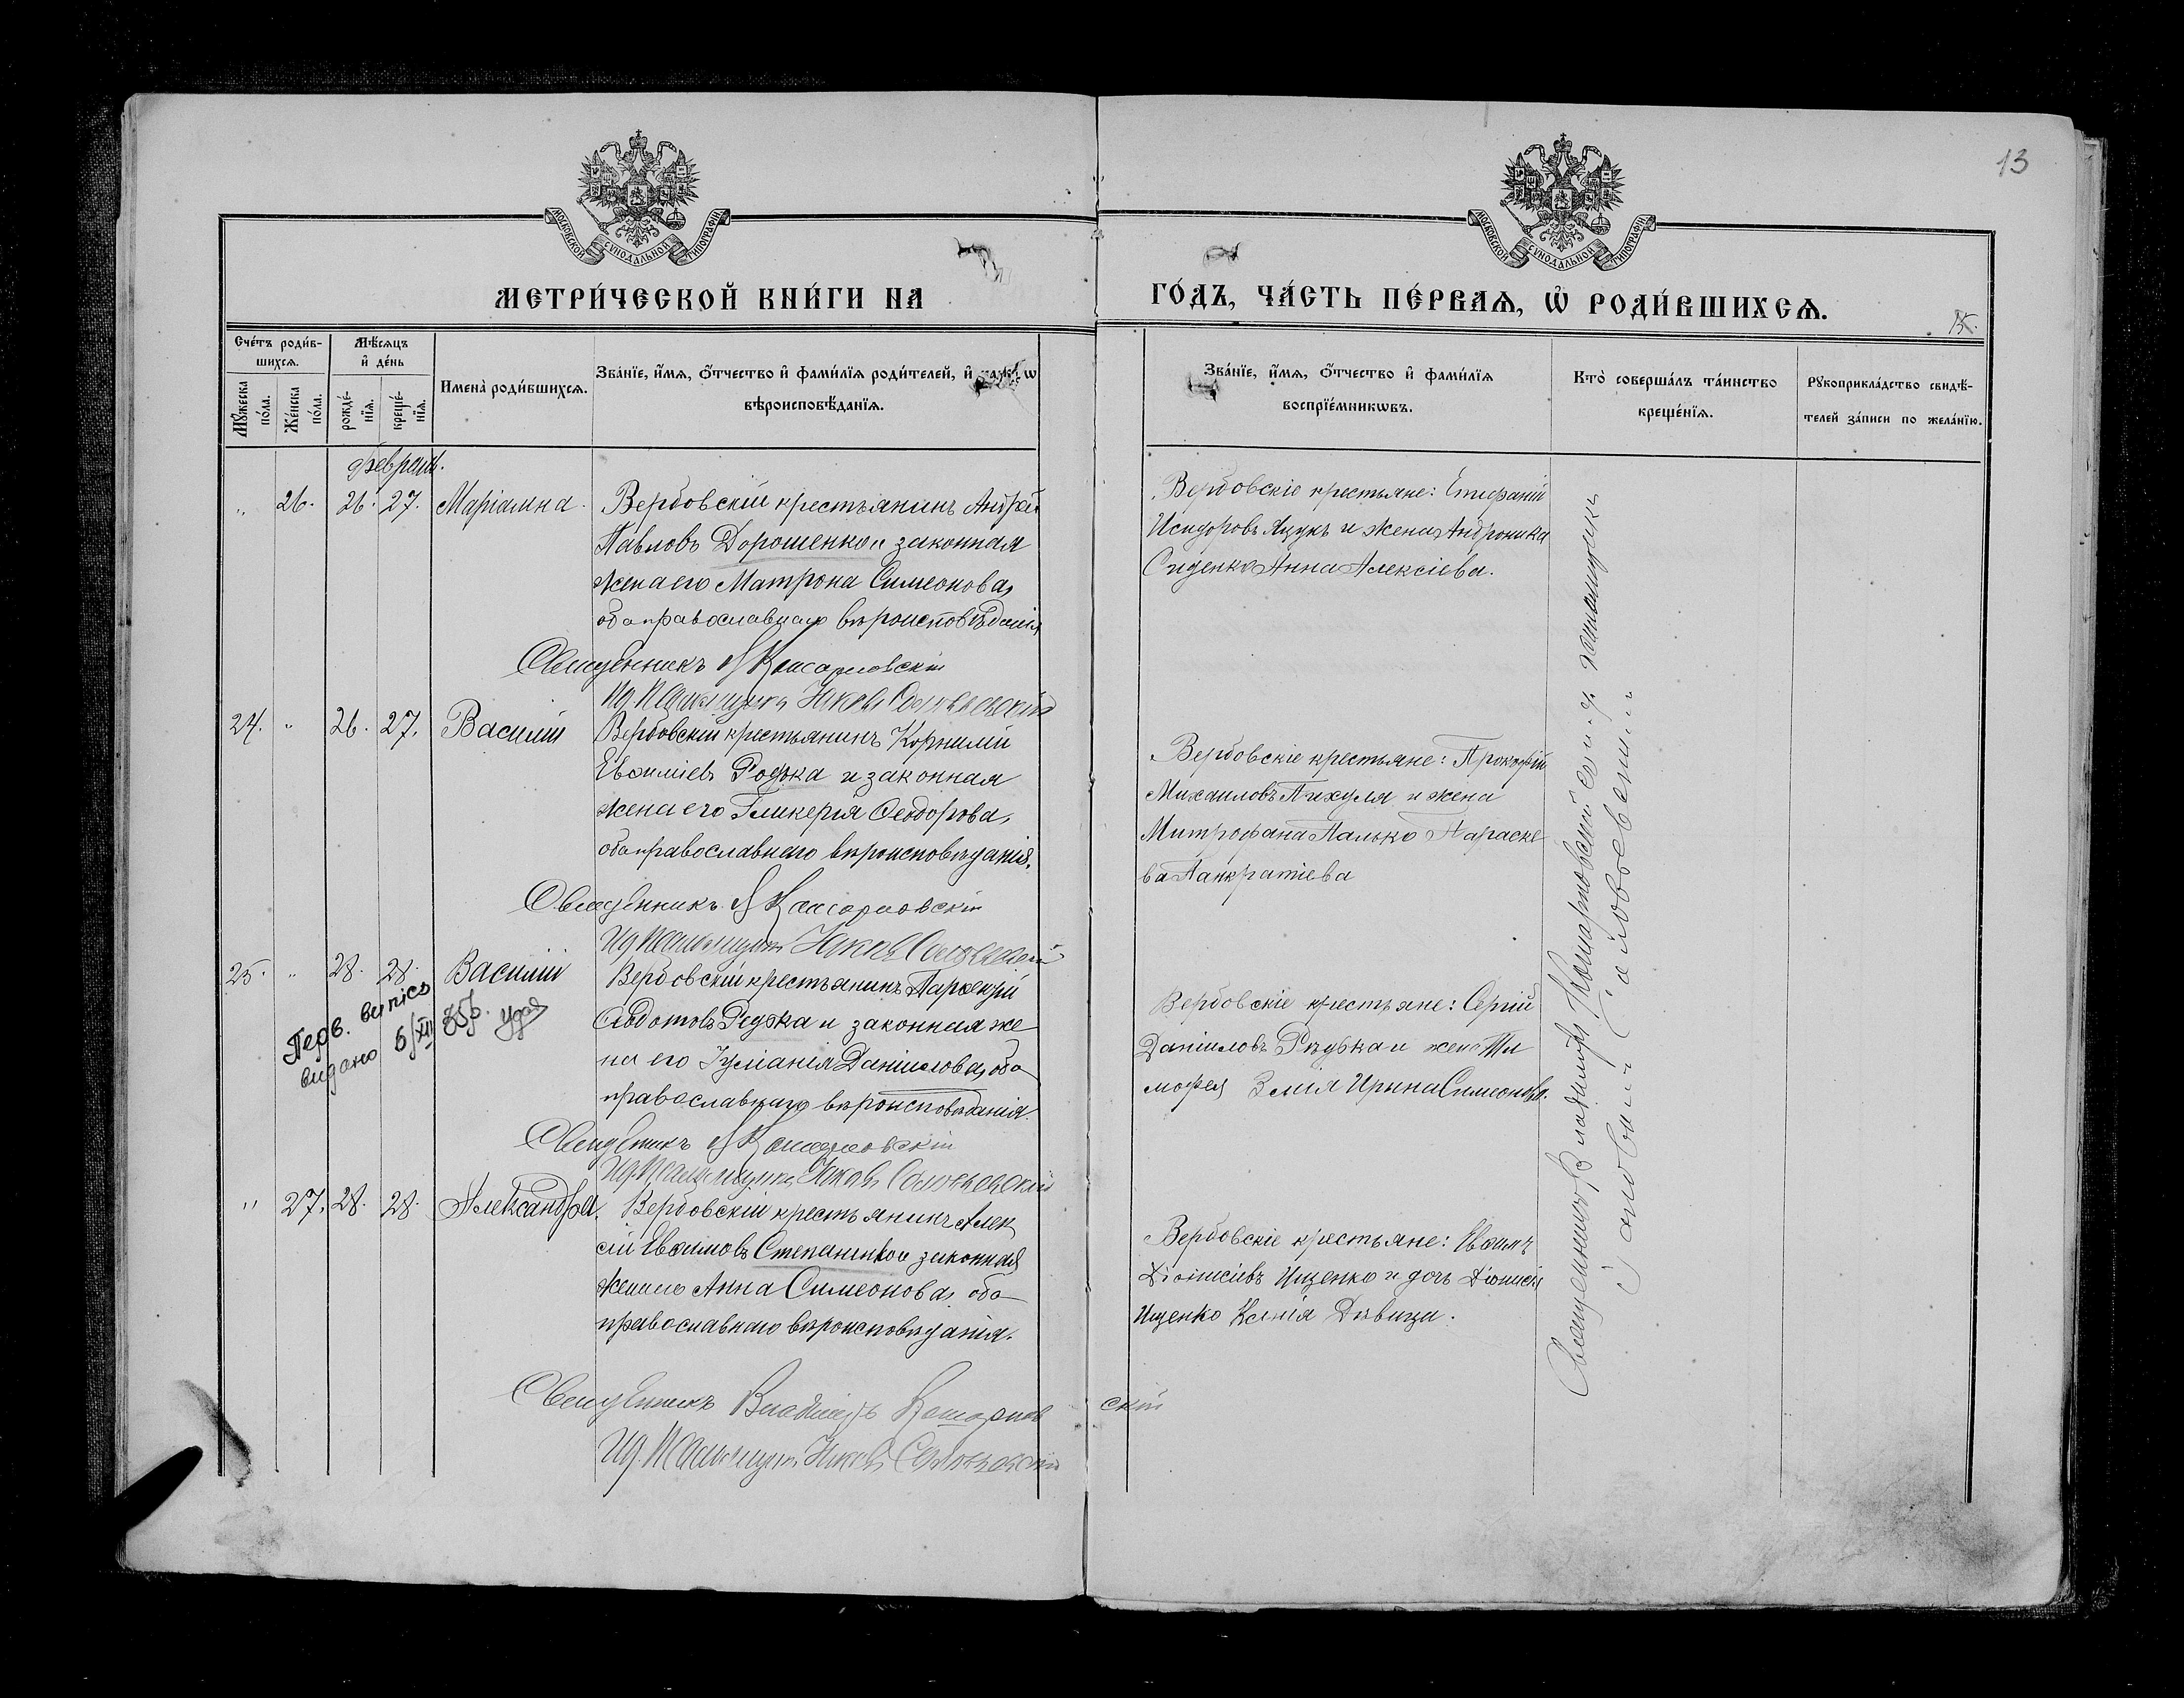 13
МОСКОВСКОЙ СѴНОДАЛЬНОЙ ТИПОГРАФІИ
МОСКОВСКОЙ СѴНОДАЛЬНОЙ ТИПОГРАФІИ
МЕТРИ́ЧЕСКОЙ КНИ́ГИ НА
ГО́ДЪ, ЧА́СТЬ ПЕ́РВАѦ, Ѿ РОДИ́ВШИХСѦ.
15.
Сче́тъ роди́в-
шихсѧ.
Мꙋ́жеска
по́ла.
Же́нска
по́ла.
Мѣ́сѧцъ
и҆ де́нь
рожде́-
нїѧ.
креще́-
нїѧ.
Имена̀ роди́вшихсѧ.
Зва́нїе, и҆́мѧ, о҆́тчество и҆ фами́лїѧ роди́телей, и҆
вѣроисповѣ́данїѧ.
Зва́нїе, и҆́мѧ, о҆́тчество и҆ фами́лїѧ
воспрїе́мникѡвъ.
Кто̀ соверша́лъ та́инство
креще́нїѧ.
Рꙋкоприкла́дство свидѣ́-
телей за́писи по жела́нїю.
Февраль.
" 26. 26. 27. Маріамна.
Вербовскій крестьянинъ Андрей
Павловъ Дорошенко и законная
жена его Матрона Симеонова,
оба православнаго вѣроисповѣданія
Священникъ В Комарновскій
Ид. Псаломщика Іаковъ Соловьевскій
Вербовскіе крестьяне: Епифаній
Исидоровъ Яцукъ и жена Андроника
Сиденко Анна Алексіева.
24. " 26. 27. Василій
Вербовскій крестьянинъ Корнилій
Евѳиміевъ Редька и законная
жена его Гликерія Ѳеодорова,
оба православнаго вѣроисповѣданія.
Священникъ В Комарновскій
Ид. Псаломщика Іаковъ Соловьевскій
Вербовскіе крестьяне: Прокофій
Михаиловъ Пихуля и жена
Митрофана Палько Параске
ва Панкратіева
25. " 28. 28. Василій
Перв. випісь
видано 5/XII 35р.
Вербовскій крестьянинъ Парѳеній
Ѳеодотовъ Редька и законная же
на его Іуліанія Даніилова, оба
православнаго вѣроисповѣданія.
Священникъ В Комарновскій
Ид. Псаломщика Іаковъ Соловьевскій
Вербовскіе крестьяне: Сергій
Даніиловъ Рѣдька и жена Ти
моѳея Змія Ирина Симеонова.
" 27. 28. 28. Александра.
Вербовскій крестьянинъ Алек
сій Евѳимовъ Степаненко и законная
жена его Анна Симеонова, оба
православнаго вѣроисповѣданія.
Священникъ Владиміръ Комарнов
скій
Ид. Псаломщика Іаковъ Соловьевскій
Вербовскіе крестьяне: Евѳимъ
Діонисіевъ Ищенко и дочь Діонисія
Ищенко Ксенія Дѣвица.
Священникъ Владиміръ Комарновскій съ и. д. псаломщика
Іаковомъ Соловьевскимъ